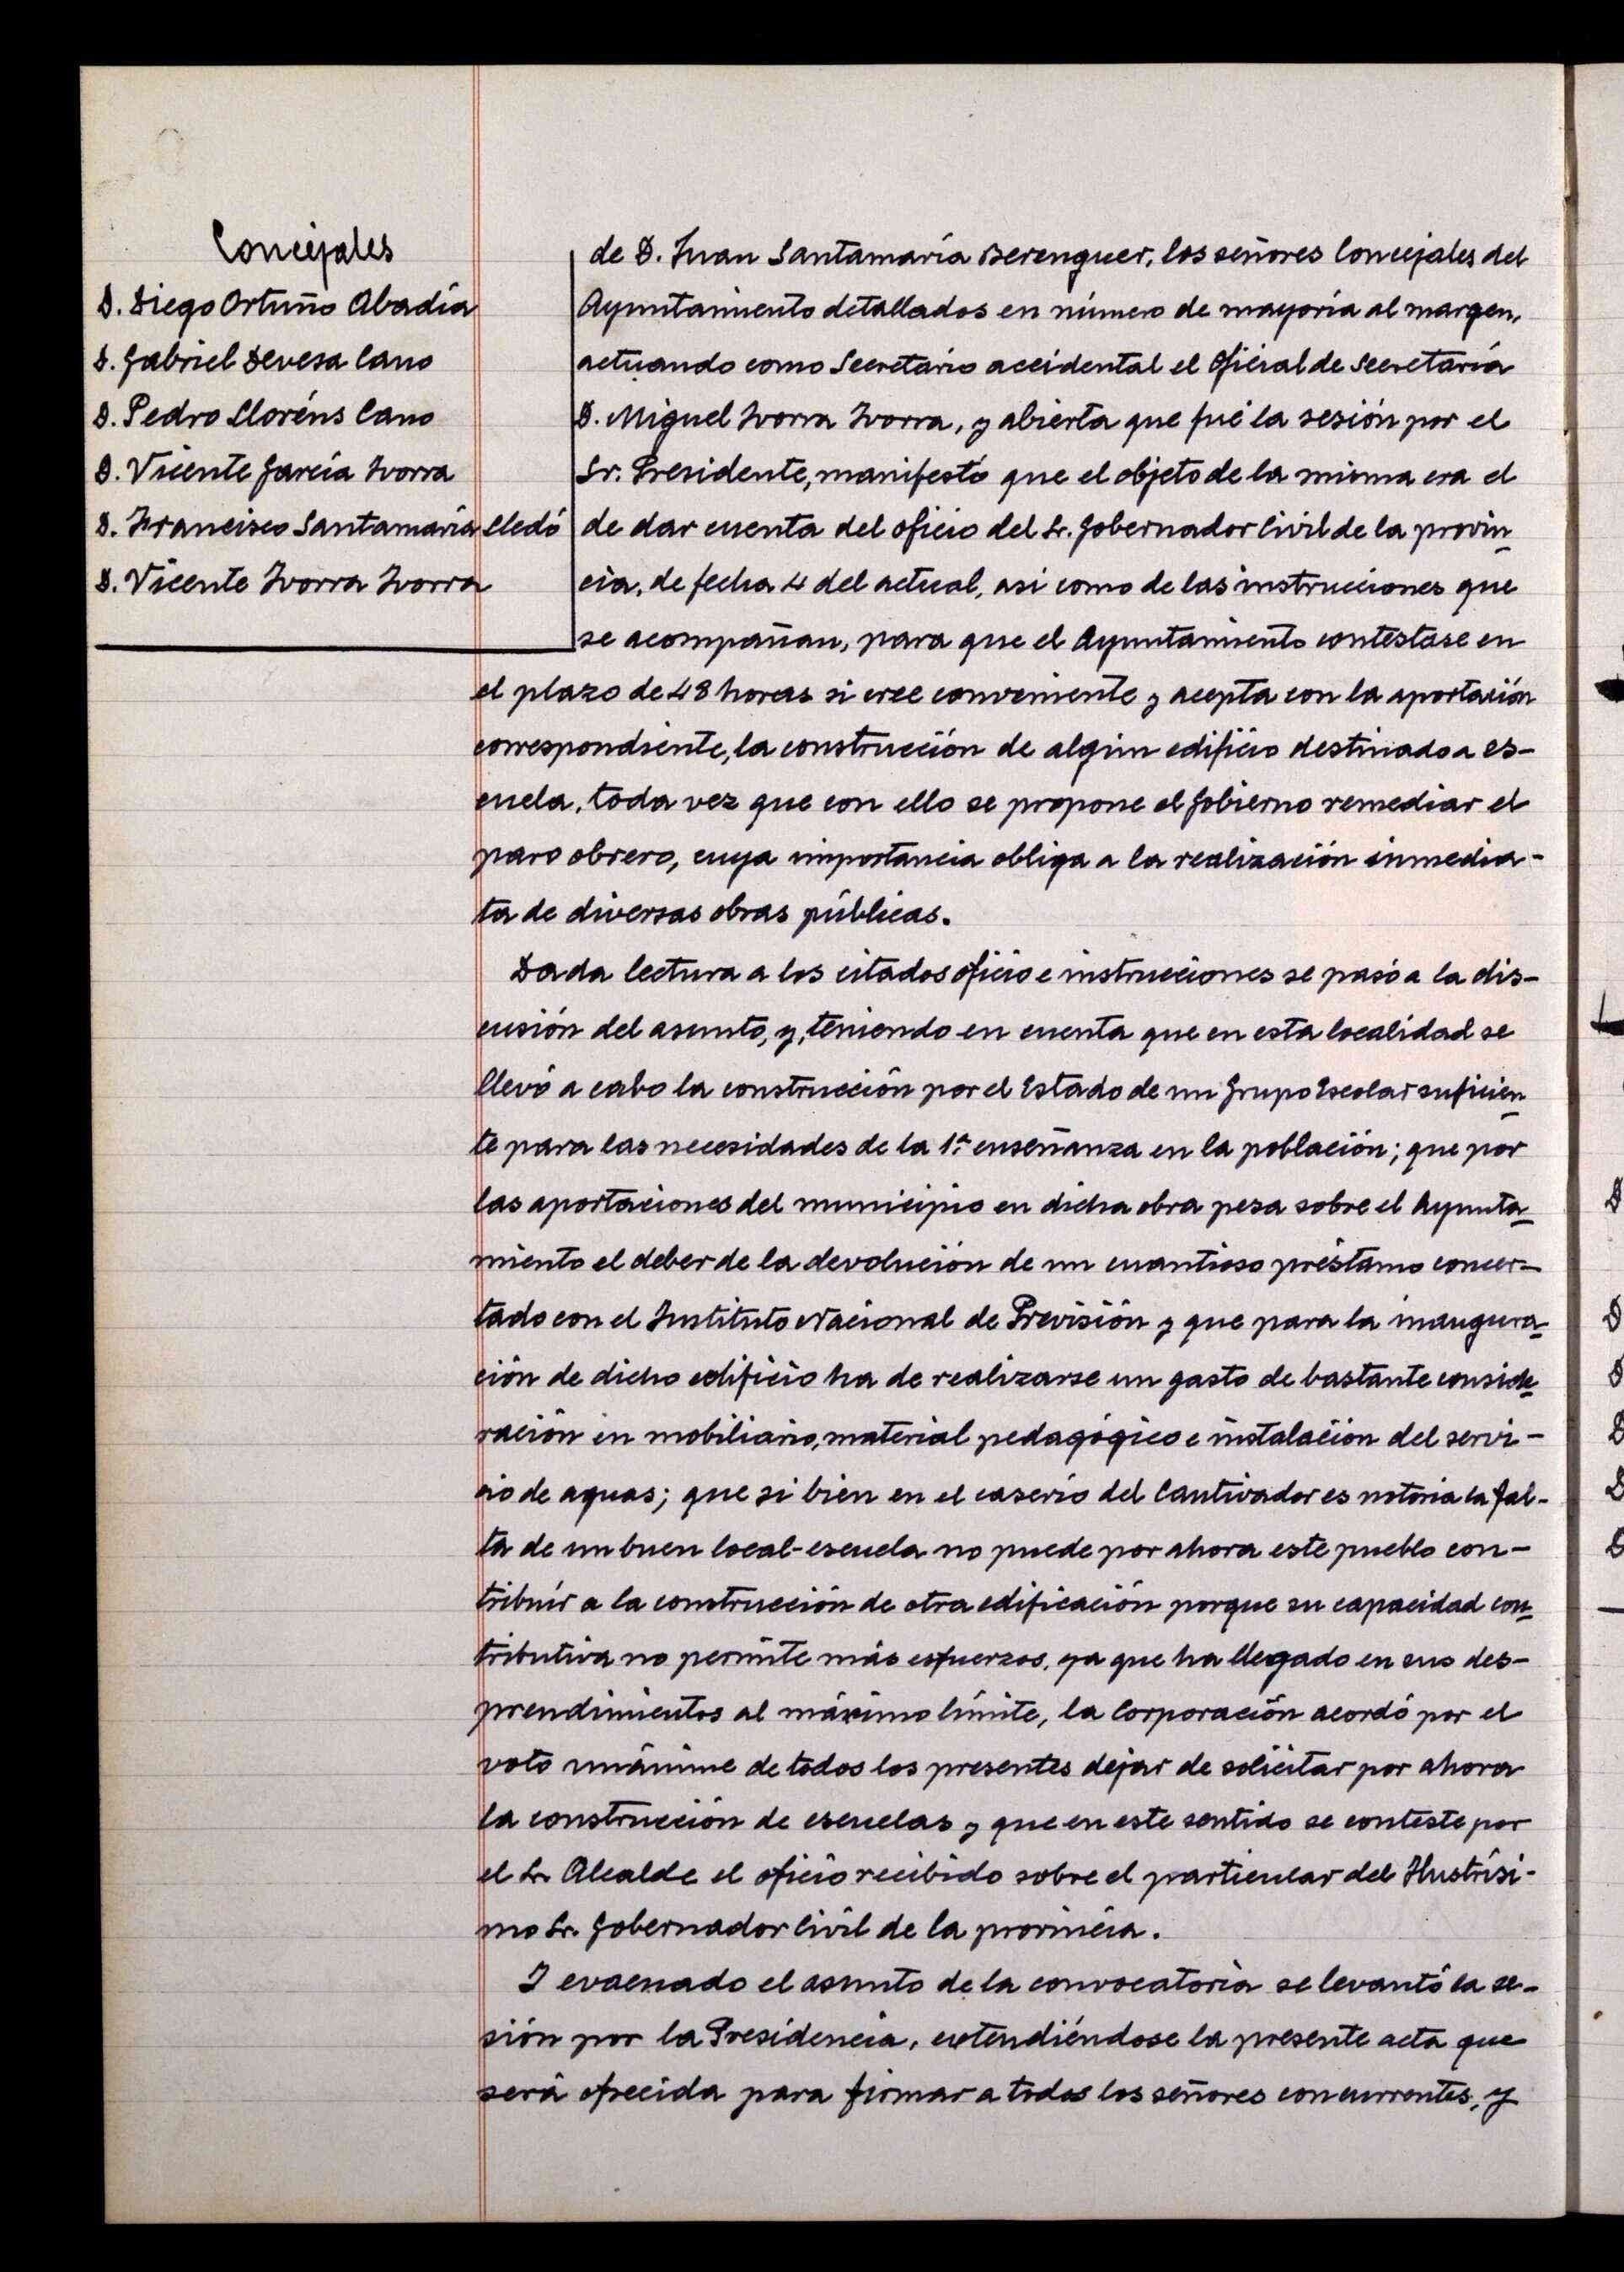 Concejales
D. Diego Ortuño Abadía
D. Gabriel Devesa Cano
D. Pedro Lloréns Cano
D. Vicente García Ivorra
D. Francisco Santamaría Lledó
D. Vicente Ivorra Ivorra
de D. Juan Santamaría Berenguer, los señores Concejales del
Ayuntamiento detallados en número de mayoría al margen,
actuando como Secretario accidental el Oficial de Secretaría
D. Miguel Ivorra Ivorra, y abierta que fué la sesión por el
Sr. Presidente, manifestó que el objeto de la misma era el
de dar cuenta del oficio del Sr. Gobernador Civil de la provin
cia, de fecha 4 del actual, asi como de las instrucciones que
se acompañan, para que el Ayuntamiento contestase en
el plazo de 48 horas si cree conveniente y acepta con la aportación
correspondiente, la construcción de algún edificio destinado a es-
cuela, toda vez que con ello se propone el Gobierno remediar el
paro obrero, cuya importancia obliga a la realización inmedia-
ta de diversas obras públicas.
Dada lectura a los citados oficio e instrucciones se pasó a la dis-
cusión del asunto, y, teniendo en cuenta que en esta localidad se
llevó a cabo la construcción por el Estado de un Grupo Escolar suficien
te para las necesidades de la 1ª enseñanza en la población; que por
las aportaciones del municipio en dicha obra pesa sobre el Ayunta
miento el deber de la devolución de un cuantioso préstamo concer-
tado con el Instituto Nacional de Previsión y que para la inaugura
ción de dicho edificio ha de realizarse un gasto de bastante conside
ración en mobiliario, material pedagógico e instalación del servi-
cio de aguas; que si bien en el caserío del Cautivador es notoria la fal-
ta de un buen local-escuela no puede por ahora este pueblo con-
tribuír a la construcción de otra edificación porque su capacidad con
tributiva no permite más esfuerzos, ya que ha llegado en sus des-
prendimientos al máximo límite, la Corporación acordó por el
voto unánime de todos los presentes dejar de solicitar por ahora
la construcción de escuelas y que en este sentido se conteste por
el Sr. Alcalde el oficio recibido sobre el particular del Ilustrísi-
mo Sr. Gobernador Civil de la provincia.
Y evacuado el asunto de la convocatoria se levantó la se-
sión por la Presidencia, extendiéndose la presente acta que
será ofrecida para firmar a todos los señores concurrentes, y